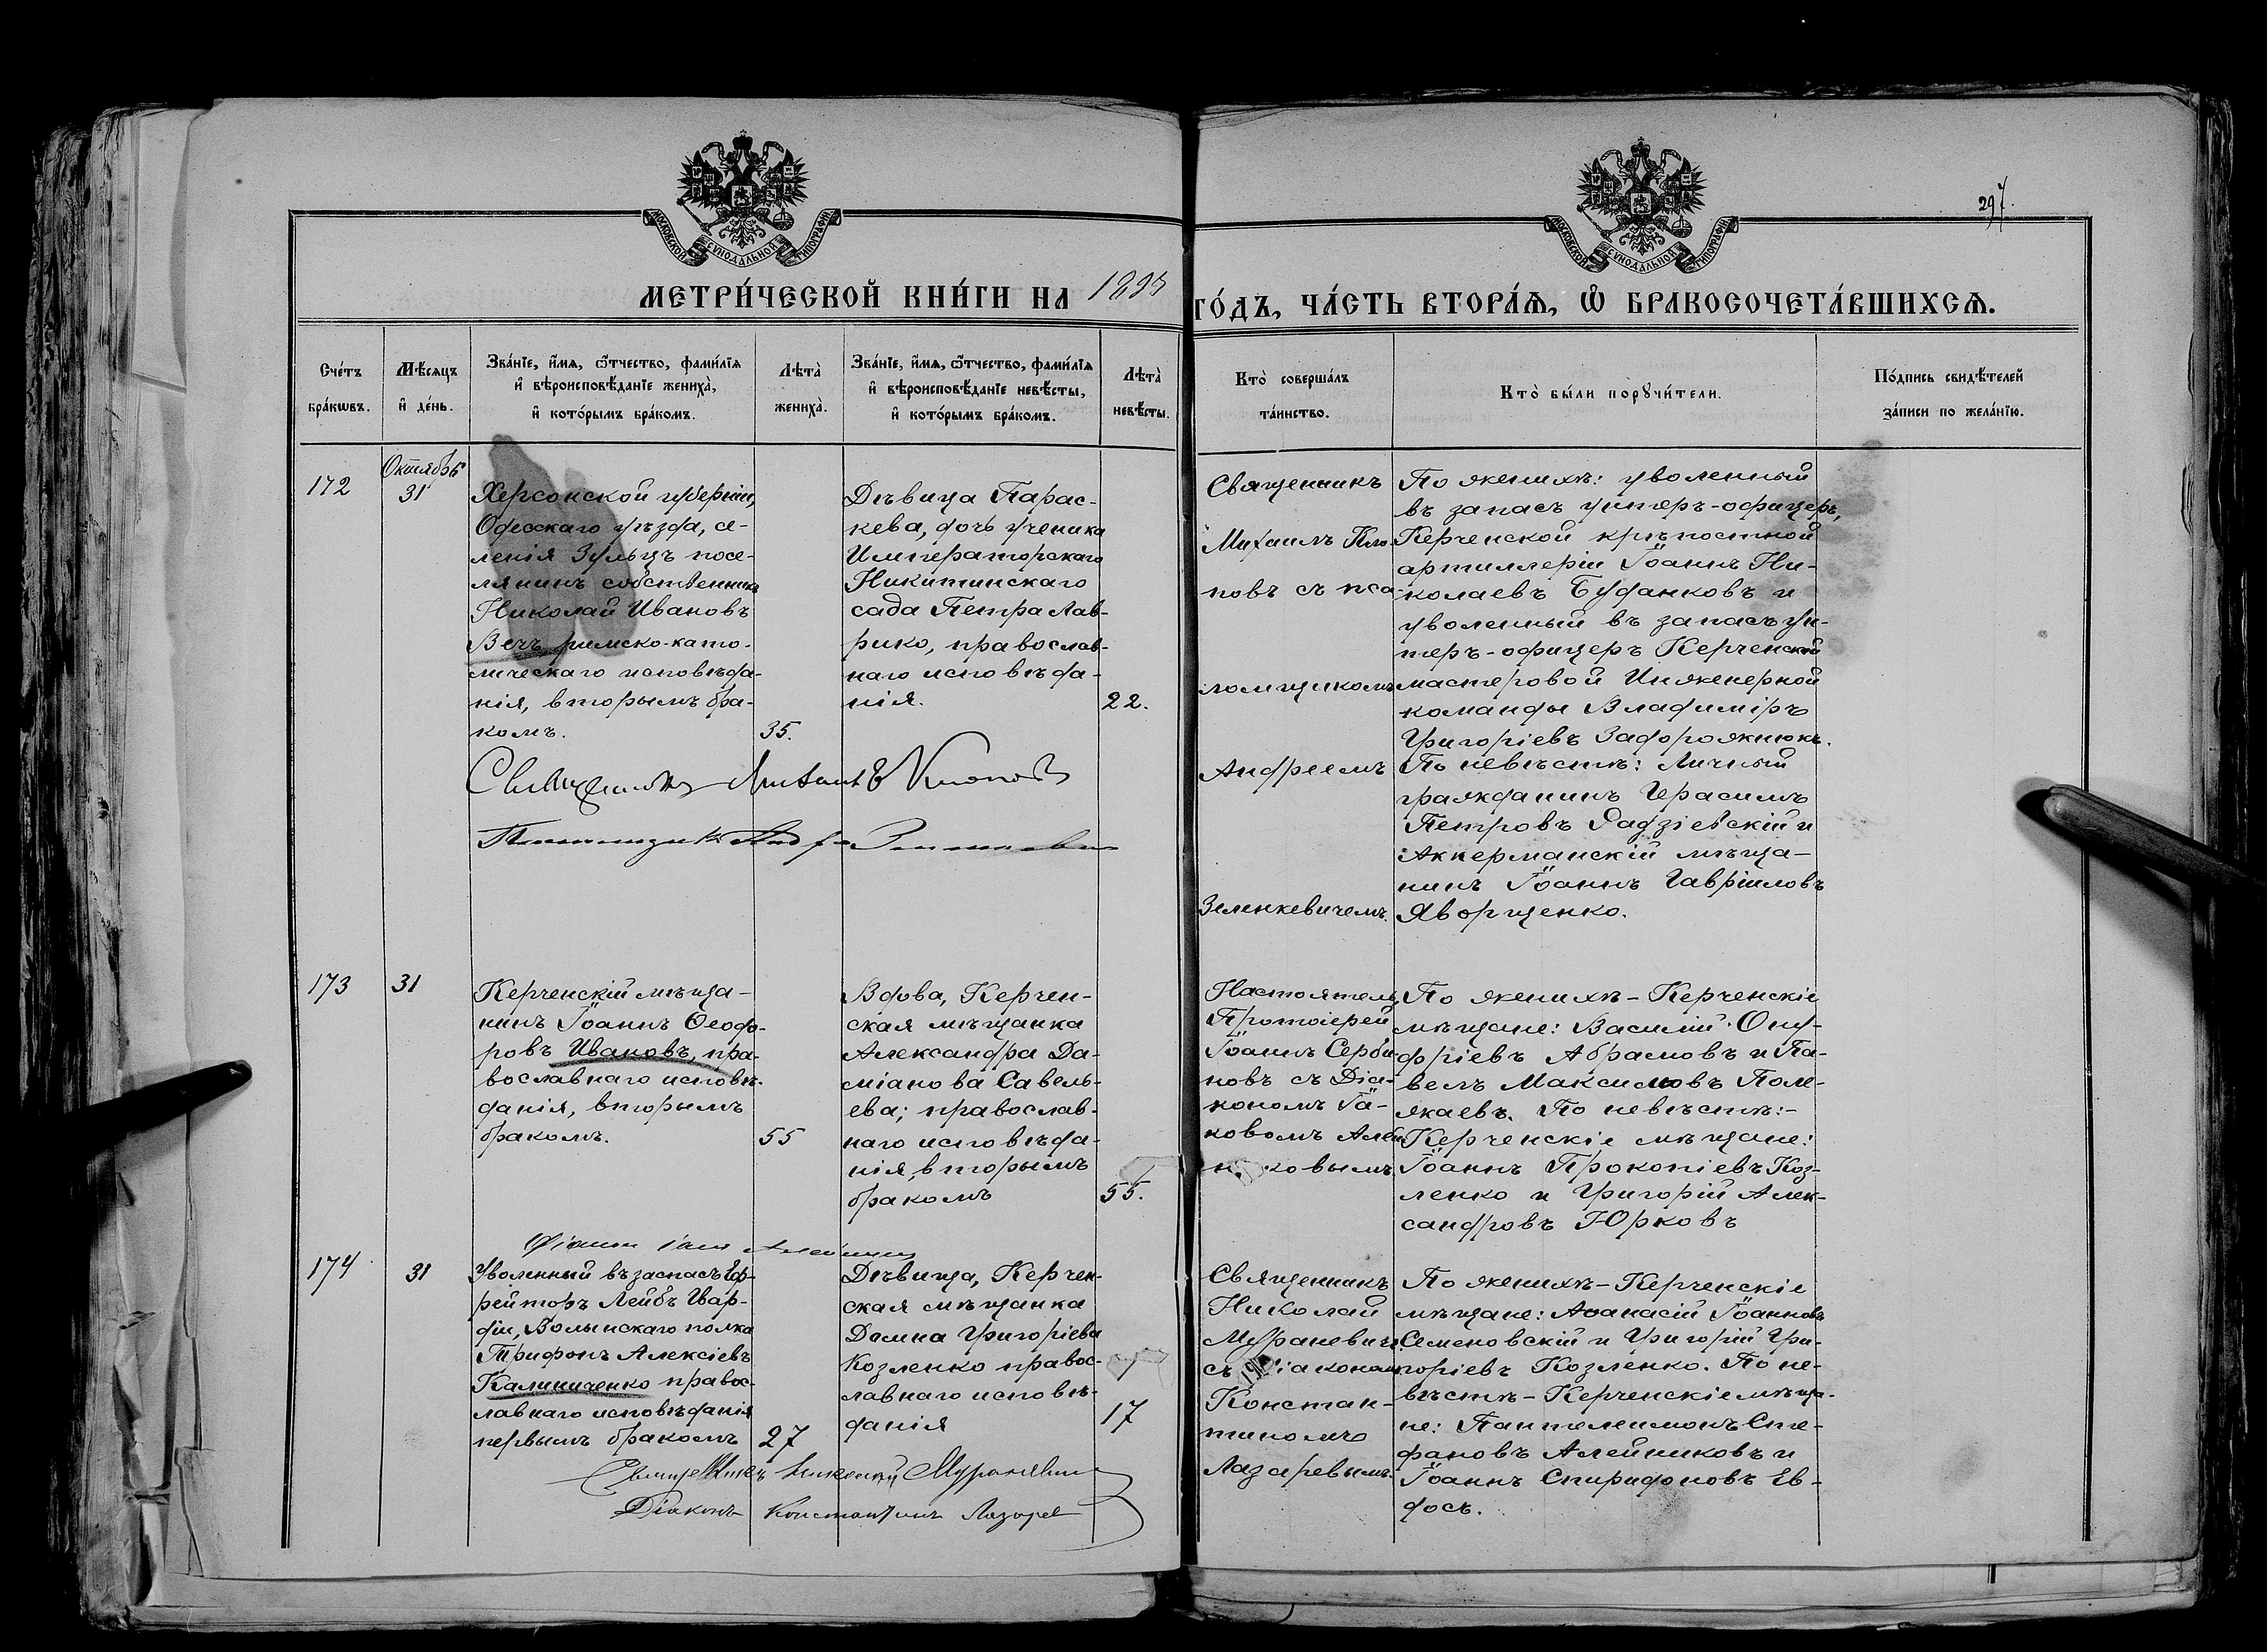 297.
МОСКОВСКОЙ СѴНОДАЛЬНОЙ ТИПОГРАФІИ
МОСКОВСКОЙ СѴНОДАЛЬНОЙ ТИПОГРАФІИ
МЕТРИ́ЧЕСКОЙ КНИ́ГИ НА
ГО́ДЪ, ЧА́СТЬ ВТОРА́Ѧ, Ѡ҆ БРАКОСОЧЕТА́ВШИХСѦ.
Сче́тъ
бра́кѡвъ.
Мѣ́сяцъ
и҆ де́нь.
Зва́нїе, и҆́мѧ, ѻ҆́тчество, фами́лїѧ
и҆ вѣроисповѣ́данїе жениха̀,
и҆ кото́рымъ бра́комъ.
Лѣта̀
жениха̀.
Зва́нїе, и҆́мѧ, ѻ҆́тчество, фами́лїѧ
и҆ вѣроисповѣ́данїе невѣ́сты,
и҆ кото́рымъ бра́комъ.
Лѣта̀
невѣ́сты.
Кто̀ соверша́лъ
та́инство.
Кто̀ бы́ли порꙋчи́тели.
По́дпись свидѣ́телей
за́писи по жела́нїю.
172
Октябрь
31
Херсонской губерніи,
Одесскаго уѣзда, се-
ленія Зульцъ посе-
лянинъ собственникъ
Николай Ивановъ
Вечъ римско-като-
лическаго исповѣда-
нія, вторымъ бра-
комъ.
35.
Дѣвица Парас-
кева, дочь ученика
Императорскаго
Никитинскаго
сада Петра Лав-
рико, православ-
наго исповѣда-
нія.
22.
Священникъ
Михаилъ Кло-
повъ съ пса-
ломщикомъ
Андреемъ
Зеленкевичемъ.
По женихѣ: уволенный
въ запасъ унтеръ-офицеръ,
Керченской крѣпостной
артиллеріи Іоаннъ Ни-
колаевъ Буданковъ и
уволенный въ запасъ ун-
теръ-офицеръ Керченской
мастеровой Инженерной
команды Владиміръ
Григоріевъ Задорожнюкъ.
По невѣстѣ: Личный
гражданинъ Герасимъ
Петровъ Радзіевскій и
Аккерманскій мѣща-
нинъ Іоаннъ Гавріиловъ
Яворщенко.
Священникъ Михаилъ Клоповъ
173
31
Керченскій мѣща-
нинъ Іоаннъ Ѳеодо-
ровъ Ивановъ, пра-
вославнаго исповѣ-
данія, вторымъ
бракомъ.
55
Вдова, Керчен-
ская мѣщанка
Александра Да-
міанова Савель-
ева; православ-
наго исповѣда-
нія, вторымъ
бракомъ
55.
Настоятель
Протоіерей
Іоаннъ Серби-
новъ съ Діа-
кономъ Іа-
ковомъ Алей-
никовымъ.
По женихѣ - Керченскіе
мѣщане: Василій Ону-
фріевъ Абрамовъ и Па-
велъ Максимовъ Поле-
жаевъ. По невѣстѣ:-
Керченскіе мѣщане:
Іоаннъ Прокопіевъ Коз-
ленко и Григорій Алек-
сандровъ Юрковъ
174
31
Уволенный въ запасъ Еф-
рейторъ Лейбъ Гвар-
діи, Волынскаго полка
Трифонъ Алексіевъ
Калиниченко правос-
лавнаго исповѣданія
первымъ бракомъ
27
Дѣвица, Керчен-
ская мѣщанка
Домна Григоріева
Козленко правос-
лавнаго исповѣ-
данія
17
Священникъ
Николай
Мураневичъ
съ Діакономъ
Констан-
тиномъ
Лазаревымъ.
По женихѣ - Керченскіе
мѣщане: Аѳанасій Іоанновъ
Семеновскій и Григорій Гри-
горіевъ Козленко. По не-
вѣстѣ - Керченскіе мѣща-
не: Пантелеимонъ Сте-
фановъ Алейниковъ и
Іоаннъ Спиридоновъ Ев-
дось.
Священникъ Николай Мураневичъ
Діаконъ Константинъ Лазарев